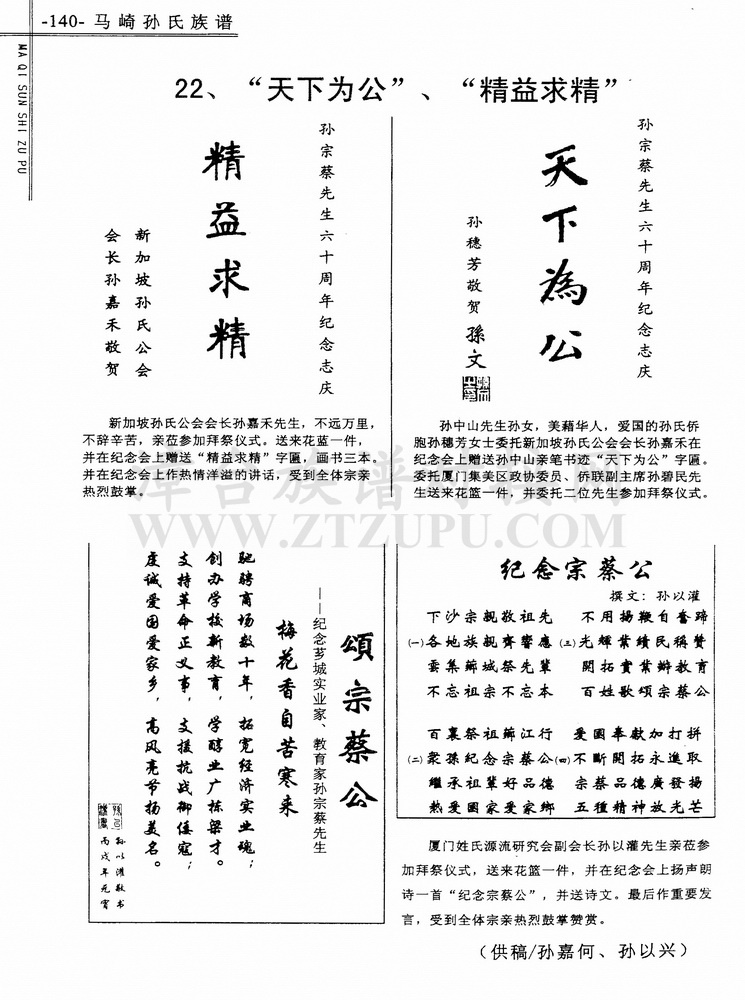 -140- 马崎孙氏族谱
MA QI SUN SHI ZU PU
22、“天下为公”、“精益求精”
孙宗蔡先生六十周年纪念志庆
天下為公
孙穗芳敬贺
孫文
孙中山先生孙女，美藉华人，爱国的孙氏侨
胞孙穗芳女士委托新加坡孙氏公会会长孙嘉禾在
纪念会上赠送孙中山亲笔书迹“天下为公”字匾。
委托厦门集美区政协委员、侨联副主席孙碧民先
生送来花篮一件，并委托二位先生参加拜祭仪式。
孙宗蔡先生六十周年纪念志庆
精益求精
新加坡孙氏公会
会长孙嘉禾敬贺
新加坡孙氏公会会长孙嘉禾先生，不远万里，
不辞辛苦，亲莅参加拜祭仪式。送来花蓝一件，
并在纪念会上赠送“精益求精”字匾，画书三本。
并在纪念会上作热情洋溢的讲话，受到全体宗亲
热烈鼓掌。
頌宗蔡公
——纪念芗城实业家、教育家孙宗蔡先生
梅花香自苦寒来
驰骋商场数十年，拓宽经济实业魂；
创办学校新教育，学醇业广栋梁才。
支持革命正义事，支援抗战御倭寇；
虔诚爱国爱家乡，高风亮节扬美名。
孙以灌敬书
丙戌年元宵
纪念宗蔡公
撰文：孙以灌
(一)
下沙宗親敬祖先
各地族親齊響應
雲集薌城祭先輩
不忘祖宗不忘本
(二)
百裏祭祖薌江行
衆孫纪念宗蔡公
繼承祖輩好品德
熱愛國家愛家鄉
(三)
不用揚鞭自奮蹄
光輝業績民稱贊
開拓實業辦教育
百姓歌頌宗蔡公
(四)
爱國奉献加打拼
不斷開拓永進取
宗蔡品德廣發揚
五種精神放光芒
厦门姓氏源流研究会副会长孙以灌先生亲莅参
加拜祭仪式，送来花篮一件，并在纪念会上扬声朗
诗一首“纪念宗蔡公”，并送诗文。最后作重要发
言，受到全体宗亲热烈鼓掌赞赏。
（供稿/孙嘉何、孙以兴）
WWW.ZTZUPU.COM